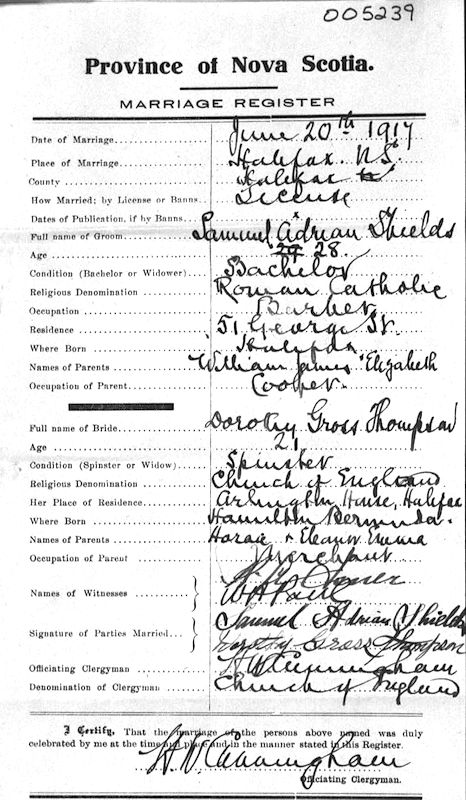 005239
Province of Nova Scotia.
MARRIAGE REGISTER
Date of Marriage June 20th 1917
Place of Marriage Halifax. N.S.
County Halifax
How Married; by License or Banns License
Dates of Publication, if by Banns
Full name of Groom Samuel Adrian Shields
Age 28.
Condition (Bachelor or Widower) Bachelor
Religious Denomination Roman Catholic
Occupation Barber
Residence 51 George St.
Where Born Halifax
Names of Parents William James Elizabeth
Occupation of Parent Cooper.
Full name of Bride Dorothy Gross Thompson
Age 21
Condition (Spinster or Widow) Spinster
Religious Denomination Church of England
Her Place of Residence Arlington House, Halifax
Where Born Hamilton Bermuda.
Names of Parents Horace + Eleanor Emma
Occupation of Parent Merchant
Names of Witnesses
Signature of Parties Married Samuel Adrian Shields
Dorothy Gross Thompson
Officiating Clergyman Cunningham
Denomination of Clergyman Church of England
I Certify, That the marriage of the persons above named was duly
celebrated by me at the time and place and in the manner stated in this Register.
Cunningham
Officiating Clergyman.